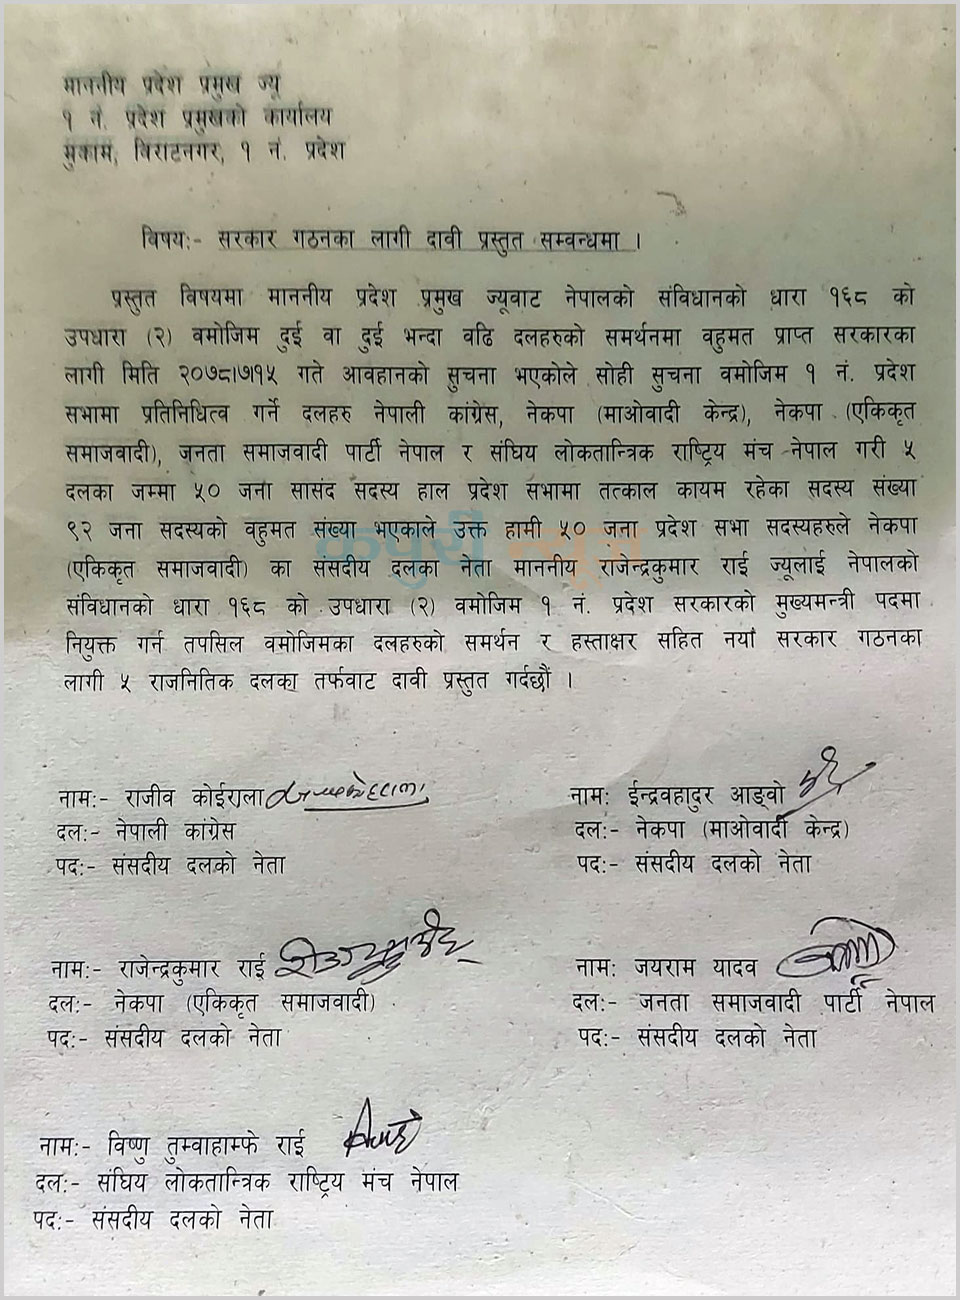 माननीय प्रदेश प्रमुख ज्यू
१ नं. प्रदेश प्रमुखको कार्यालय
मुकाम, विराटनगर, १ नं. प्रदेश
विषयः- सरकार गठनका लागी दावी प्रस्तुत सम्वन्धमा ।
प्रस्तुत विषयमा माननीय प्रदेश प्रमुख ज्यूवाट नेपालको संविधानको धारा १६८ को
उपधारा (२) वमोजिम दुई वा दुई भन्दा वढि दलहरुको समर्थनमा वहुमत प्राप्त सरकारका
लागी मिति २०७८।७।१५ गते आवहानको सुचना भएकोले सोही सुचना वमोजिम १ नं. प्रदेश
सभामा प्रतिनिधित्व गर्ने दलहरु नेपाली कांग्रेस, नेकपा (माओवादी केन्द्र), नेकपा (एकिकृत
समाजवादी), जनता समाजवादी पार्टी नेपाल र संघिय लोकतान्त्रिक राष्ट्रिय मंच नेपाल गरी ५
दलका जम्मा ५० जना सासंद सदस्य हाल प्रदेश सभामा तत्काल कायम रहेका सदस्य संख्या
९२ जना सदस्यको वहुमत संख्या भएकाले उक्त हामी ५० जना प्रदेश सभा सदस्यहरुले नेकपा
(एकिकृत समाजवादी) का संसदीय दलका नेता माननीय राजेन्द्रकुमार राई ज्यूलाई नेपालको
संविधानको धारा १६८ को उपधारा (२) वमोजिम १ नं. प्रदेश सरकारको मुख्यमन्त्री पदमा
नियुक्त गर्न तपसिल वमोजिमका दलहरुको समर्थन र हस्ताक्षर सहित नयाँ सरकार गठनका
लागी ५ राजनितिक दलका तर्फवाट दावी प्रस्तुत गर्दछौं ।
कपुरी न्यूज
नामः- राजीव कोईराला
दलः- नेपाली कांग्रेस
पदः- संसदीय दलको नेता
नामः ईन्द्रवहादुर आङ्वो
दलः- नेकपा (माओवादी केन्द्र)
पदः- संसदीय दलको नेता
नामः- राजेन्द्रकुमार राई
दलः- नेकपा (एकिकृत समाजवादी)
पदः- संसदीय दलको नेता
नामः जयराम यादव
दलः- जनता समाजवादी पार्टी नेपाल
पदः- संसदीय दलको नेता
नामः- विष्णु तुम्वाहाम्फे राई
दलः- संघिय लोकतान्त्रिक राष्ट्रिय मंच नेपाल
पदः- संसदीय दलको नेता